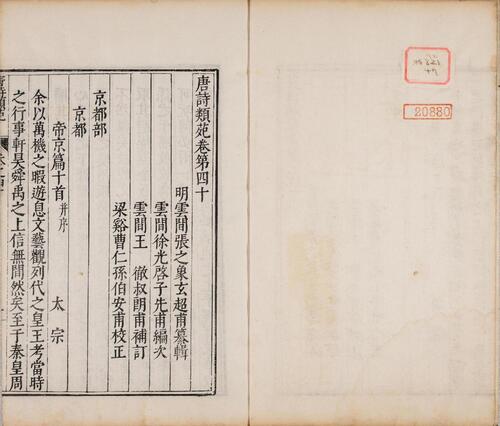 唐詩類苑卷第四十
明雲間張之象玄超甫纂輯
雲間徐光啓子先甫編次
雲間王 徹叔朗甫補訂
梁谿曹仁孫伯安甫校正
京都部
京都
帝京篇十首并序
太宗
余以萬機之暇遊息文藝觀列代之皇王考當時
之行事軒昊舜禹之上信無間然矣至于秦皇周
20880